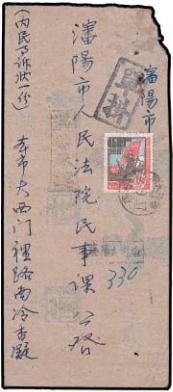 瀋陽市
單掛
瀋陽市人民法院民事課 公啓
330
本市大西门裡路南冷香凝
(内民事诉状一份)